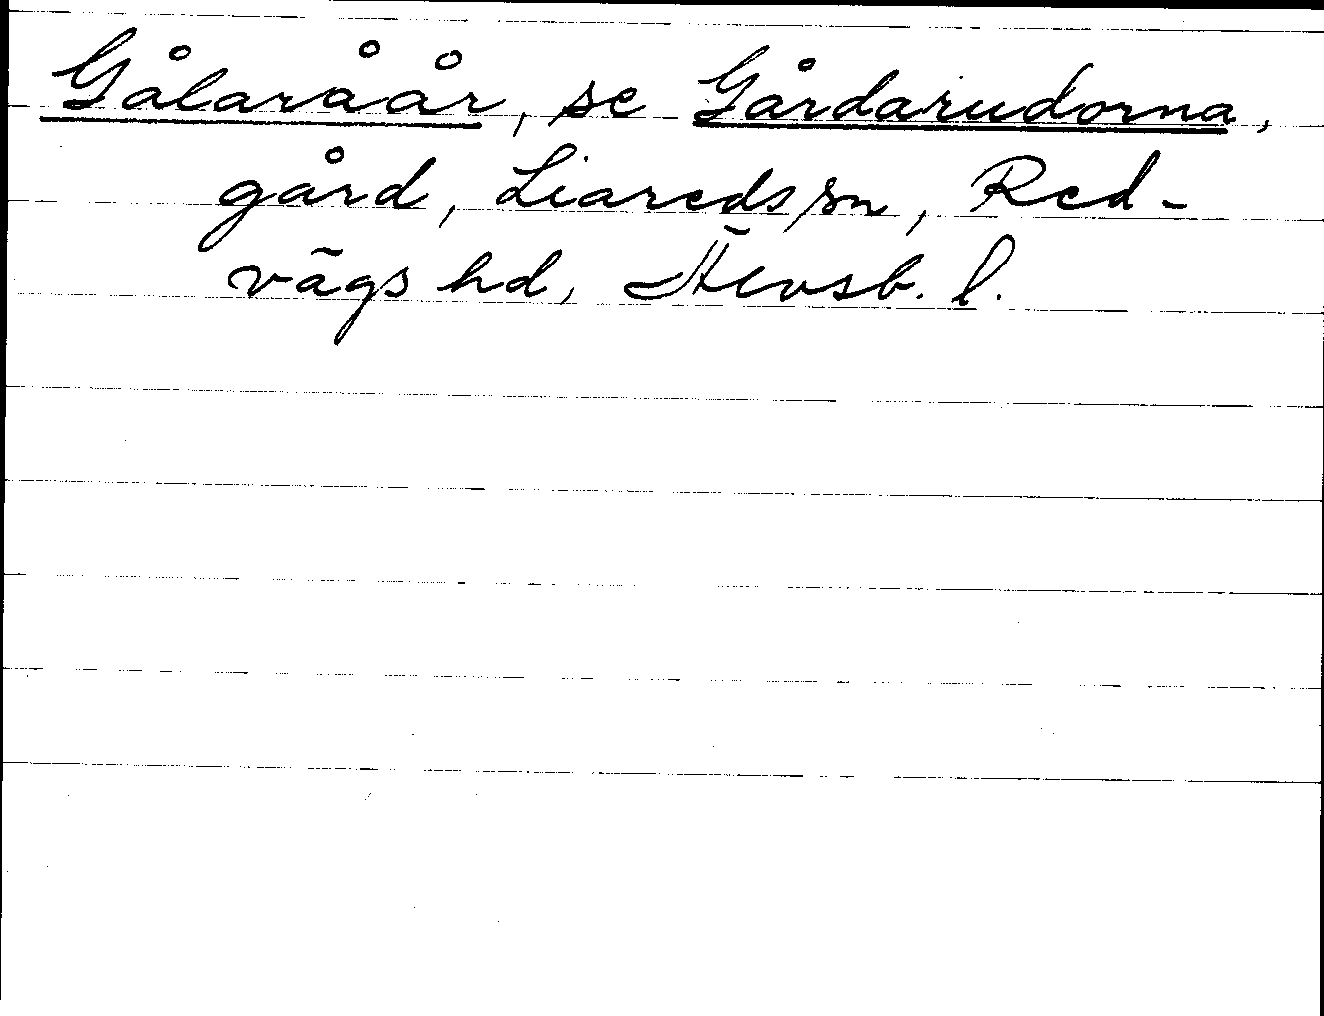 Gålaråår, se Gårdarudorna,
gård, Liareds sn, Red-
vägs hd, Älvsb. l.